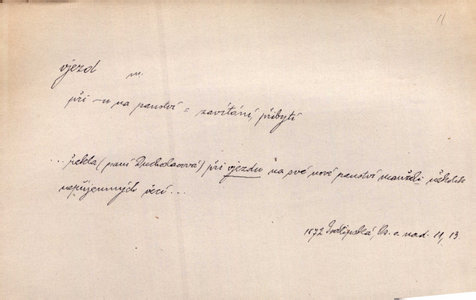 11
vjezd m
při –u na panství = zavítání, přibytí
... řekla (paní Ducholasová) při vjezdu na své nové panství manželi několik
nepříjemných věcí ...
1872 Podlipská, Os. a nad. II, 13.